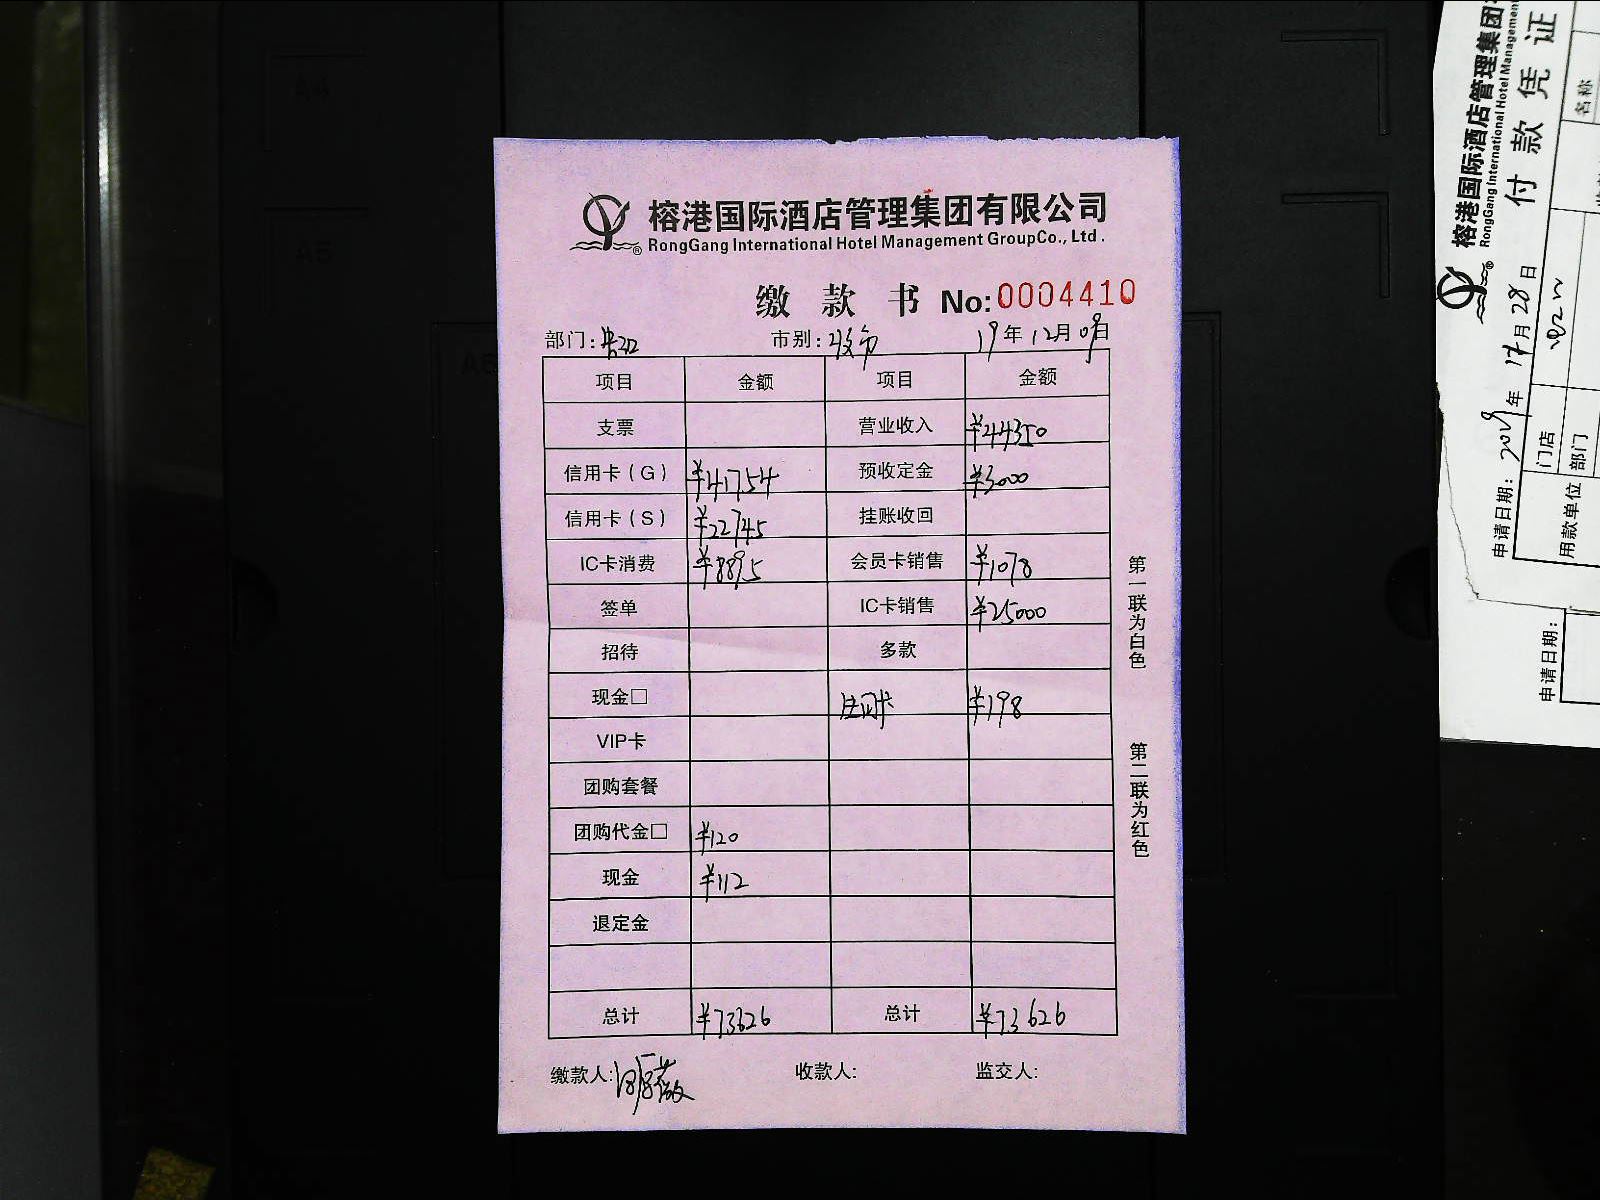 榕港国际酒店管理集团有限公司
RongGang International Hotel Management GroupCo., Ltd.
缴 款 书 No:0004410
部门: 市别:收市 19年12月09日
项目 金额 项目 金额
支票 营业收入 ¥44350
信用卡（G） ¥41754 预收定金 ¥3000
信用卡（S） ¥22745 挂账收回
IC卡消费 ¥8895 会员卡销售 ¥1078
签单 IC卡销售 ¥25000
招待 多款
现金□ ¥198
VIP卡
团购套餐
团购代金□ ¥120
现金 ¥112
退定金
总计 ¥73626 总计 ¥73626
缴款人: 收款人: 监交人:
第一联为白色
第二联为红色
榕港国际酒店管理集团
RongGang International Hotel Management
付 款 凭 证
申请日期: 2019年12月28日
门店
部门
用款单位
名称
申请日期:
A4
A5